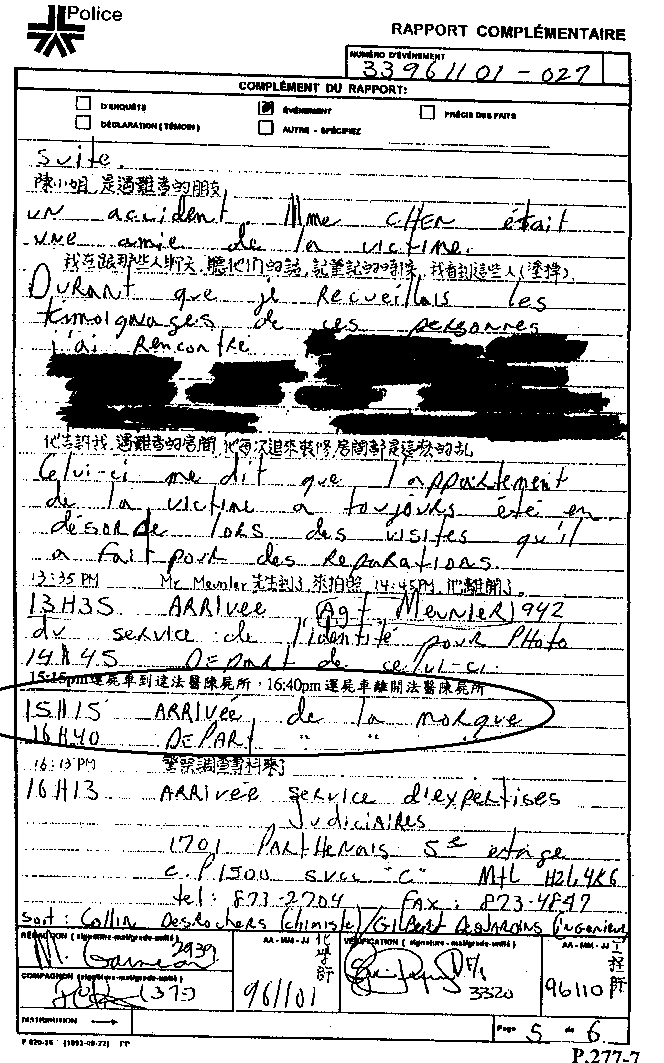 Police
RAPPORT COMPLÉMENTAIRE
NUMÉRO D'ÉVÉNEMENT
33961101-027
COMPLÉMENT DU RAPPORT:
D'ENQUÊTE
ÉVÉNEMENT
PRÉCIS DES FAITS
DÉCLARATION (TÉMOIN)
AUTRE - SPÉCIFIEZ
suite.
陳小姐,是遇難者的朋友
un accident. Mme CHEN était
une amie de la victime.
我在跟那些人聊天,聽他們的話,記筆記的時候,我看到這些人(塗掉)
Durant que je recueillais les
témoignages de ces personnes
j'ai rencontré
他告訴我,遇難者的房間,他每次進來裝修,房間都是這麼的乱
Celui-ci me dit que l'appartement
de la victime a toujours été en
désordre lors des visites qu'il
a fait pour des réparations.
13:35 PM Mr. Meunier 先生到了來拍照 14:45PM,他離開了.
13H35 ARRIVÉE Agt MEUNIER 1942
du service de l'identité pour PHOTO
14H45 DÉPART de celui-ci.
15:15pm運屍車到達法醫陳屍所,16:40pm運屍車離開法醫陳屍所
15H15 ARRIVÉE de la morgue
16H40 DÉPART " " "
16:13 PM 警察調查專科來了
16H13 ARRIVÉE service d'expertises
Judiciaires
1701 PARTHENAIS 5e étage
C.P 1500 succ "C" Mtl H2L4K6
tel: 873-2704 FAX: 873-4847
Soit: Collin DesRochers (chimiste)/GILBERT DESJARDINS (ingénieur
化學師
工程師
RÉDACTION (signature-matricule/grade-unité)
2939
AA - MM - JJ
VÉRIFICATION (signature - matricule/grade - unité)
AA - MM - JJ
COMPAGNON (signature-matricule/grade-unité)
961101
3320
DISTRIBUTION
Page 5 de 6
P.277-7